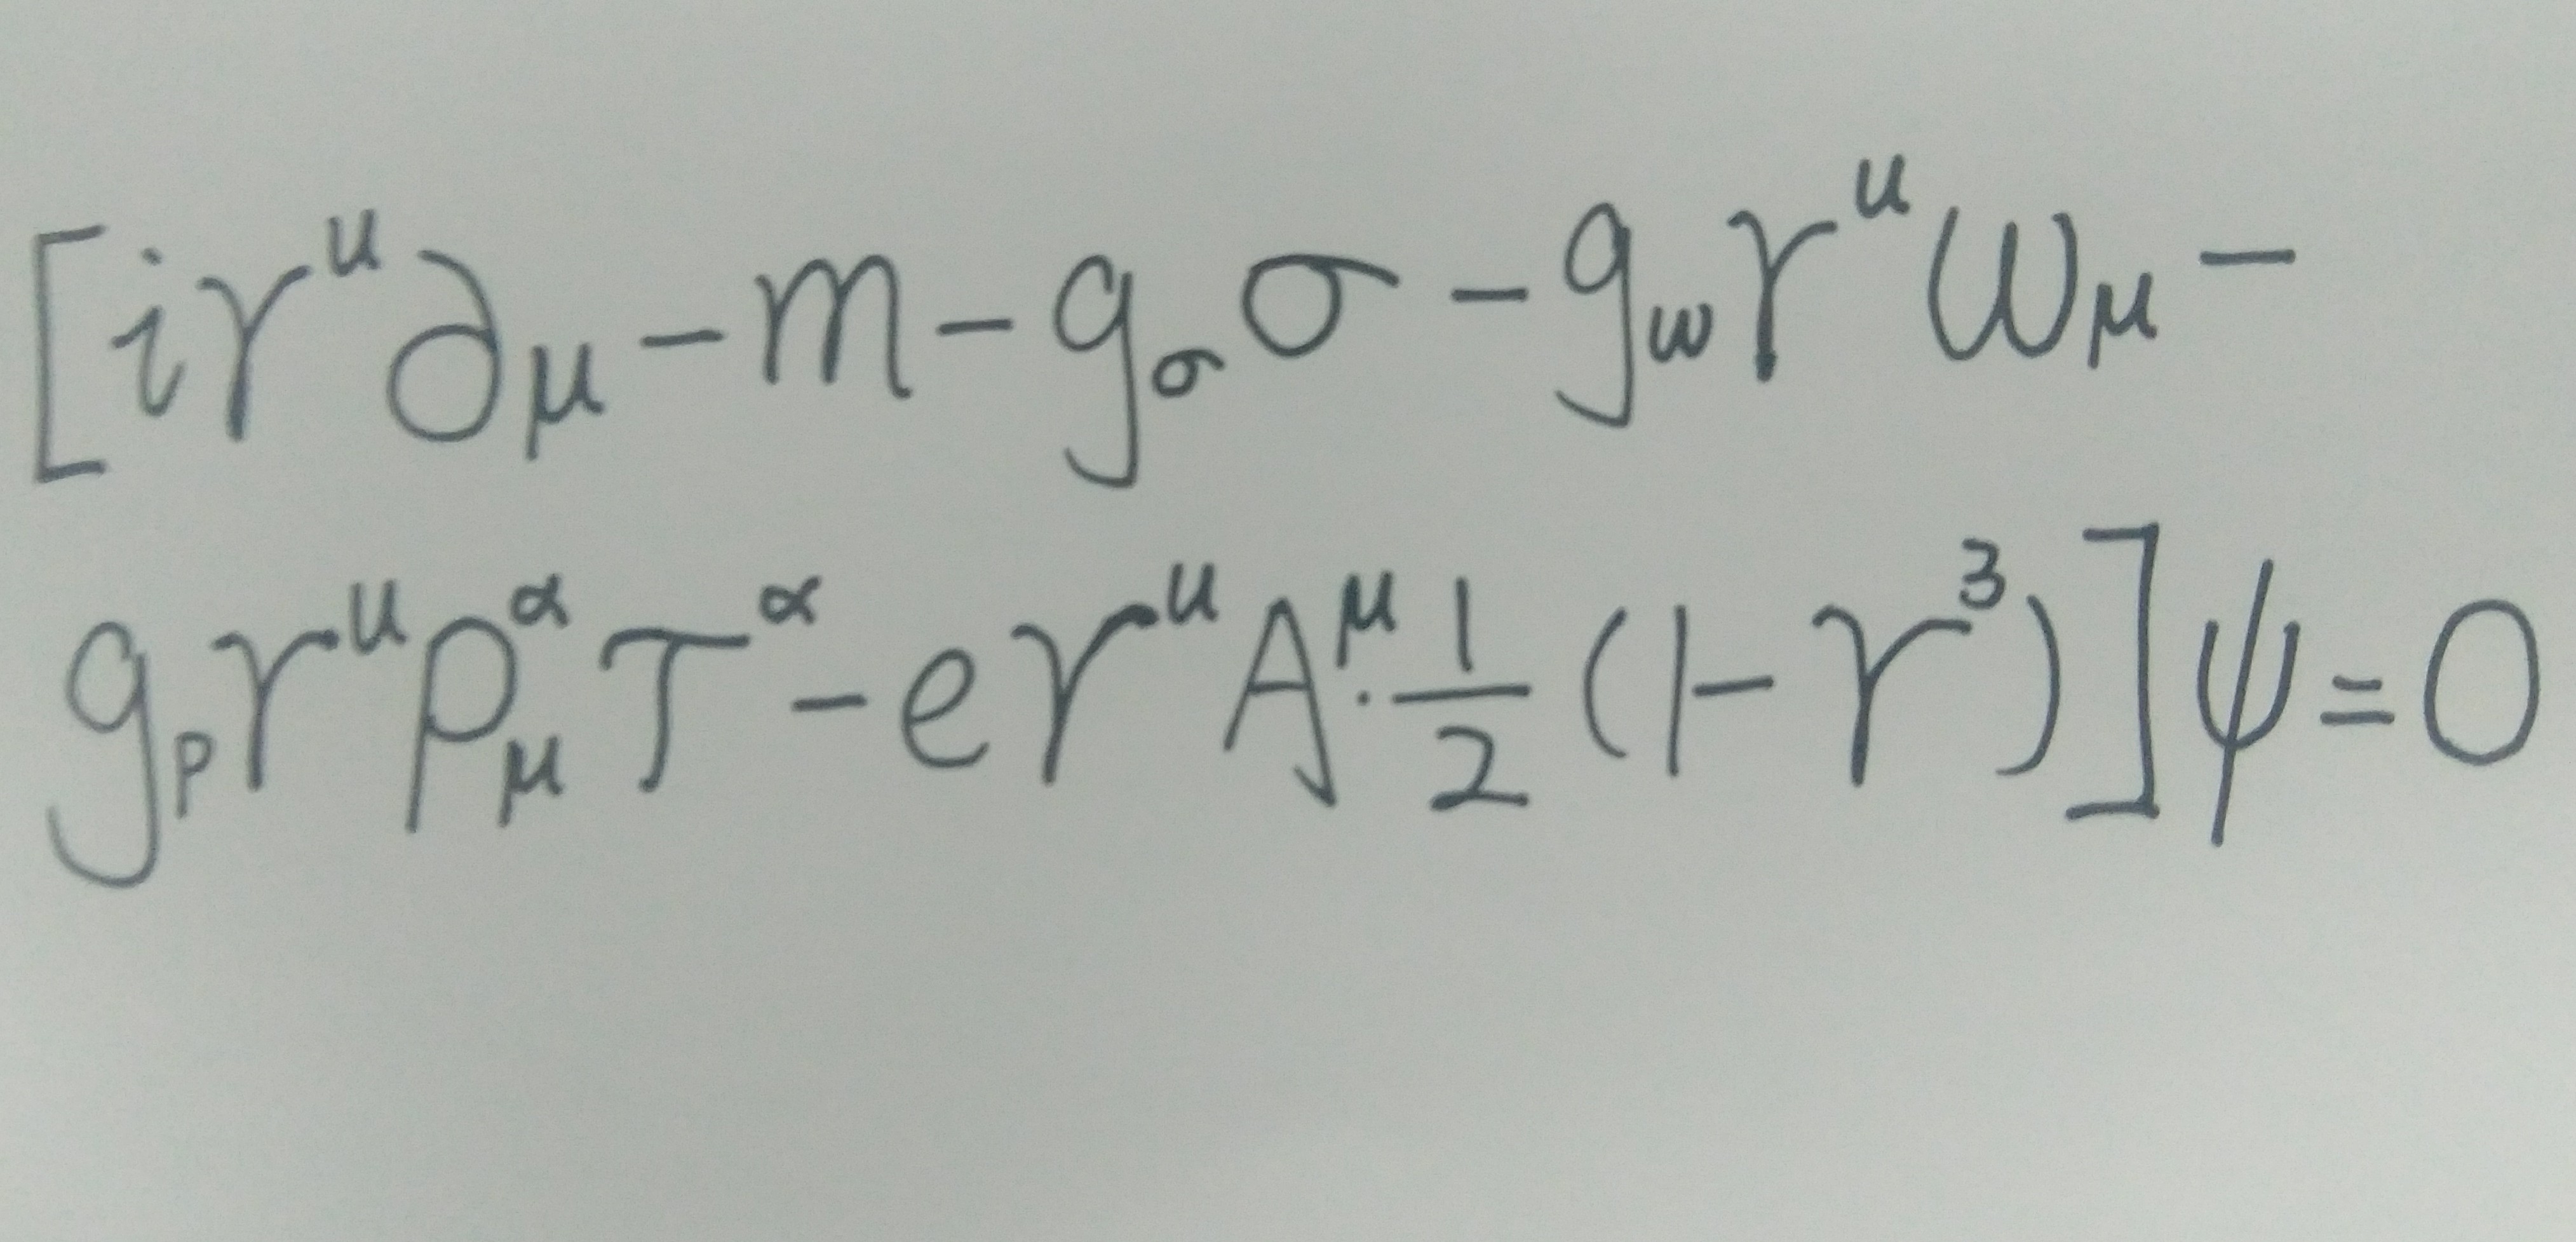 [iγ^u ∂_μ - m - g_σ σ - g_ω γ^u ω_μ -
g_ρ γ^u ρ_μ^α τ^α - eγ^u A^μ · 1/2 (1 - γ^3)]ψ = 0